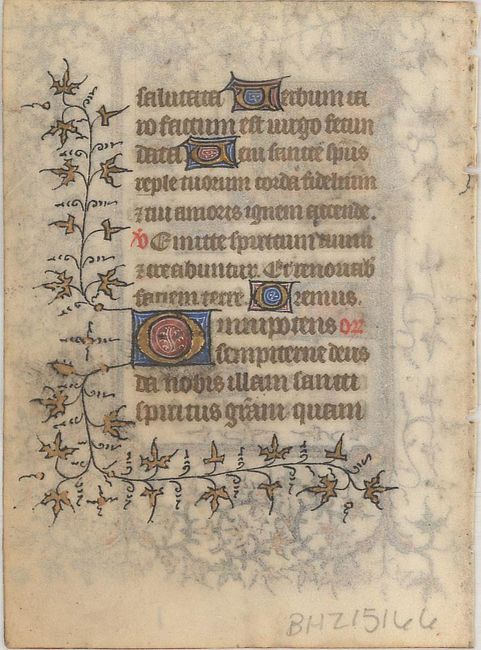 salutata Verbum ca
ro factum est uirgo fecun
data Veni sancte sps
reple tuorum corda fidelium
⁊ tui amoris ignem accende.
℣ Emitte spiritum tuum
⁊ creabuntur. Et renouab
faciem terre. Oremus.
Omnipotens or
sempiterne deus
da nobis illam sancti
spiritus gram quam
BHZ15166